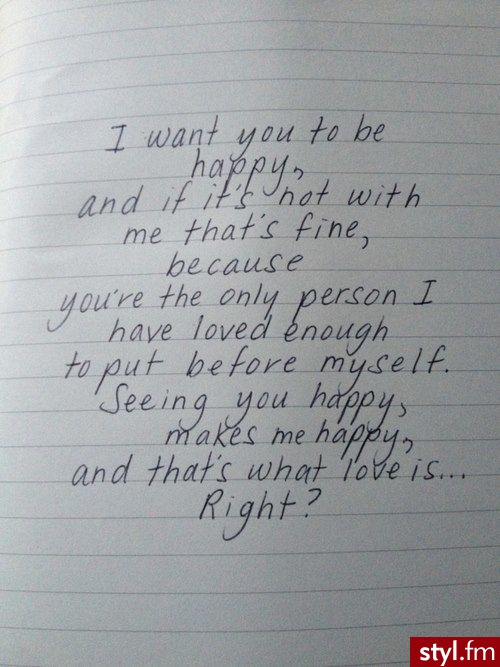 I want you to be
happy,
and if it's not with
me that's fine,
because
you're the only person I
have loved enough
to put before myself.
Seeing you happy,
makes me happy,
and that's what love is...
Right?
styl.fm